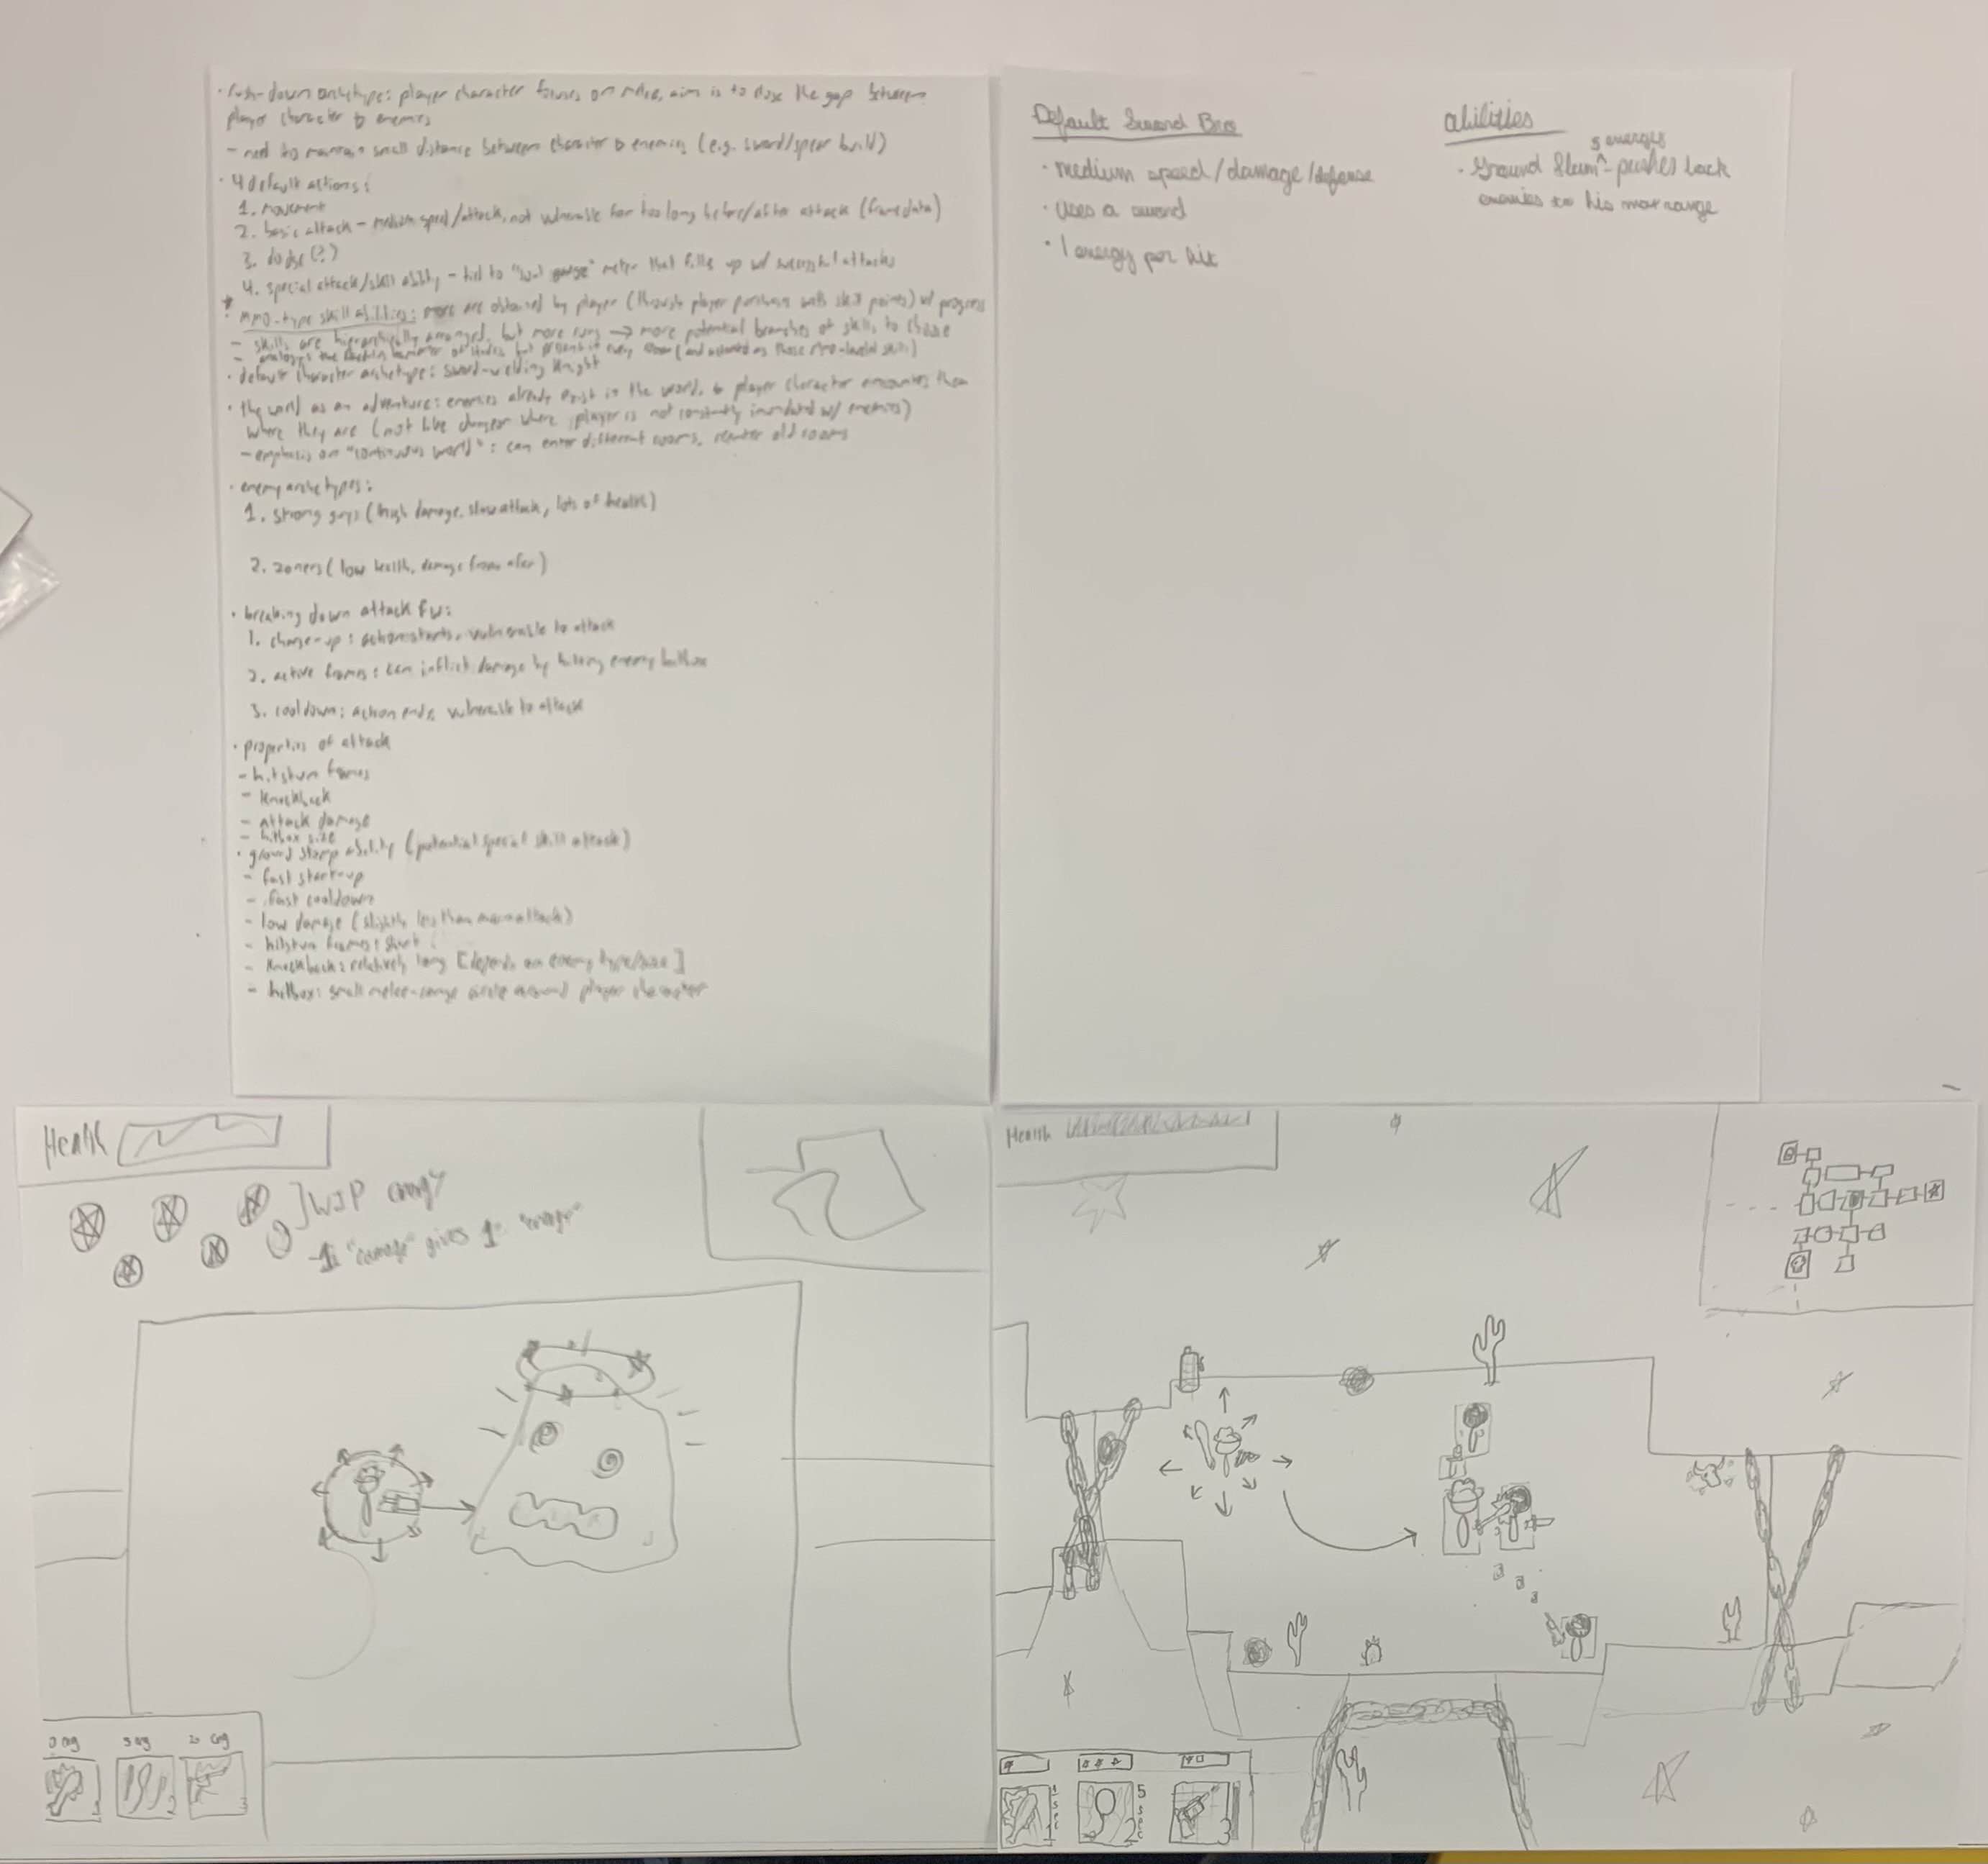 · rush-down archetype: player character focuses on melee, aim is to close the gap between
player character & enemies
- need to maintain small distance between character & enemies (e.g. sword/spear build)
· 4 default actions:
1. movement
2. basic attack - medium speed/attack, not vulnerable for too long before/after attack (frame data)
3. dodge (?)
4. special attack/skill ability - tied to "soul gauge" meter that fills up w/ successful attacks
* MMO-type skill abilities: more are obtained by player (through player purchase with skill points) w/ progress
- skills are hierarchically arranged, but more rung → more potential branches of skills to choose
- analogy: the
· default character archetype: sword-wielding knight
· the world as an adventure: enemies already exist in the world, & player character encounters them
where they are (not like dungeon where player is not constantly inundated w/ enemies)
- emphasis on "continuous world": can enter different rooms, reenter old rooms
· enemy archetypes:
1. strong guys (high damage, slow attack, lots of health)
2. zoners (low health, damage from afar)
· breaking down attack FW:
1. charge-up: action starts, vulnerable to attack
2. active frames: can inflict damage by hitting enemy hitbox
3. cooldown: action ends, vulnerable to attack
· properties of attack
- hitstun frames
- knockback
- attack damage
- hitbox size
· ground stomp ability (potential special skill attack)
- fast start-up
- fast cooldown
- low damage (slightly less than attack)
- hitstun frames: short
- knockback: relatively long [depends on enemy type/size]
- hitbox: small melee-range circle around player character
Default Sword Bro
· medium speed/damage/defense
· uses a sword
· 1 energy per hit
abilities
5 energy
· Ground Slam^ - pushes back
enemies to his max range
Health
WIP energy
- 1 "damage" gives 1
1
2
3
Health
5
sec
1
2
3